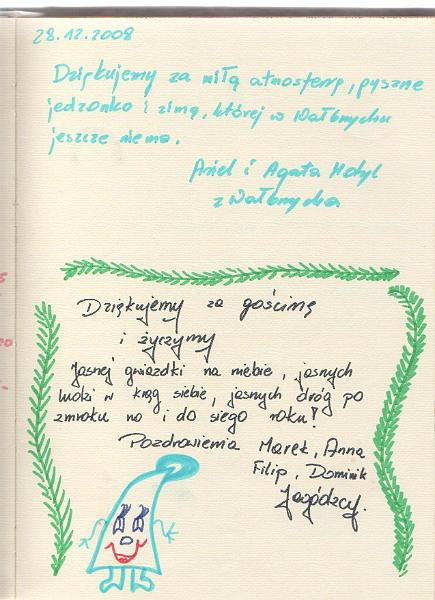 28.12.2008
Dziękujemy za miłą atmosferę, pyszne
jedzonko i zimę, której w Wałbrzychu
jeszcze niema.
Ariel i Agata Motyl
z Wałbrzycha
Dziękujemy za gościnę
i życzymy
Jasnej gwiazdki na niebie, jasnych
w krąg siebie, jasnych dróg po
zmroku no i do siego roku!
Pozdrowienia Marek, Anna
Filip, Dominik
Jagódzcy.